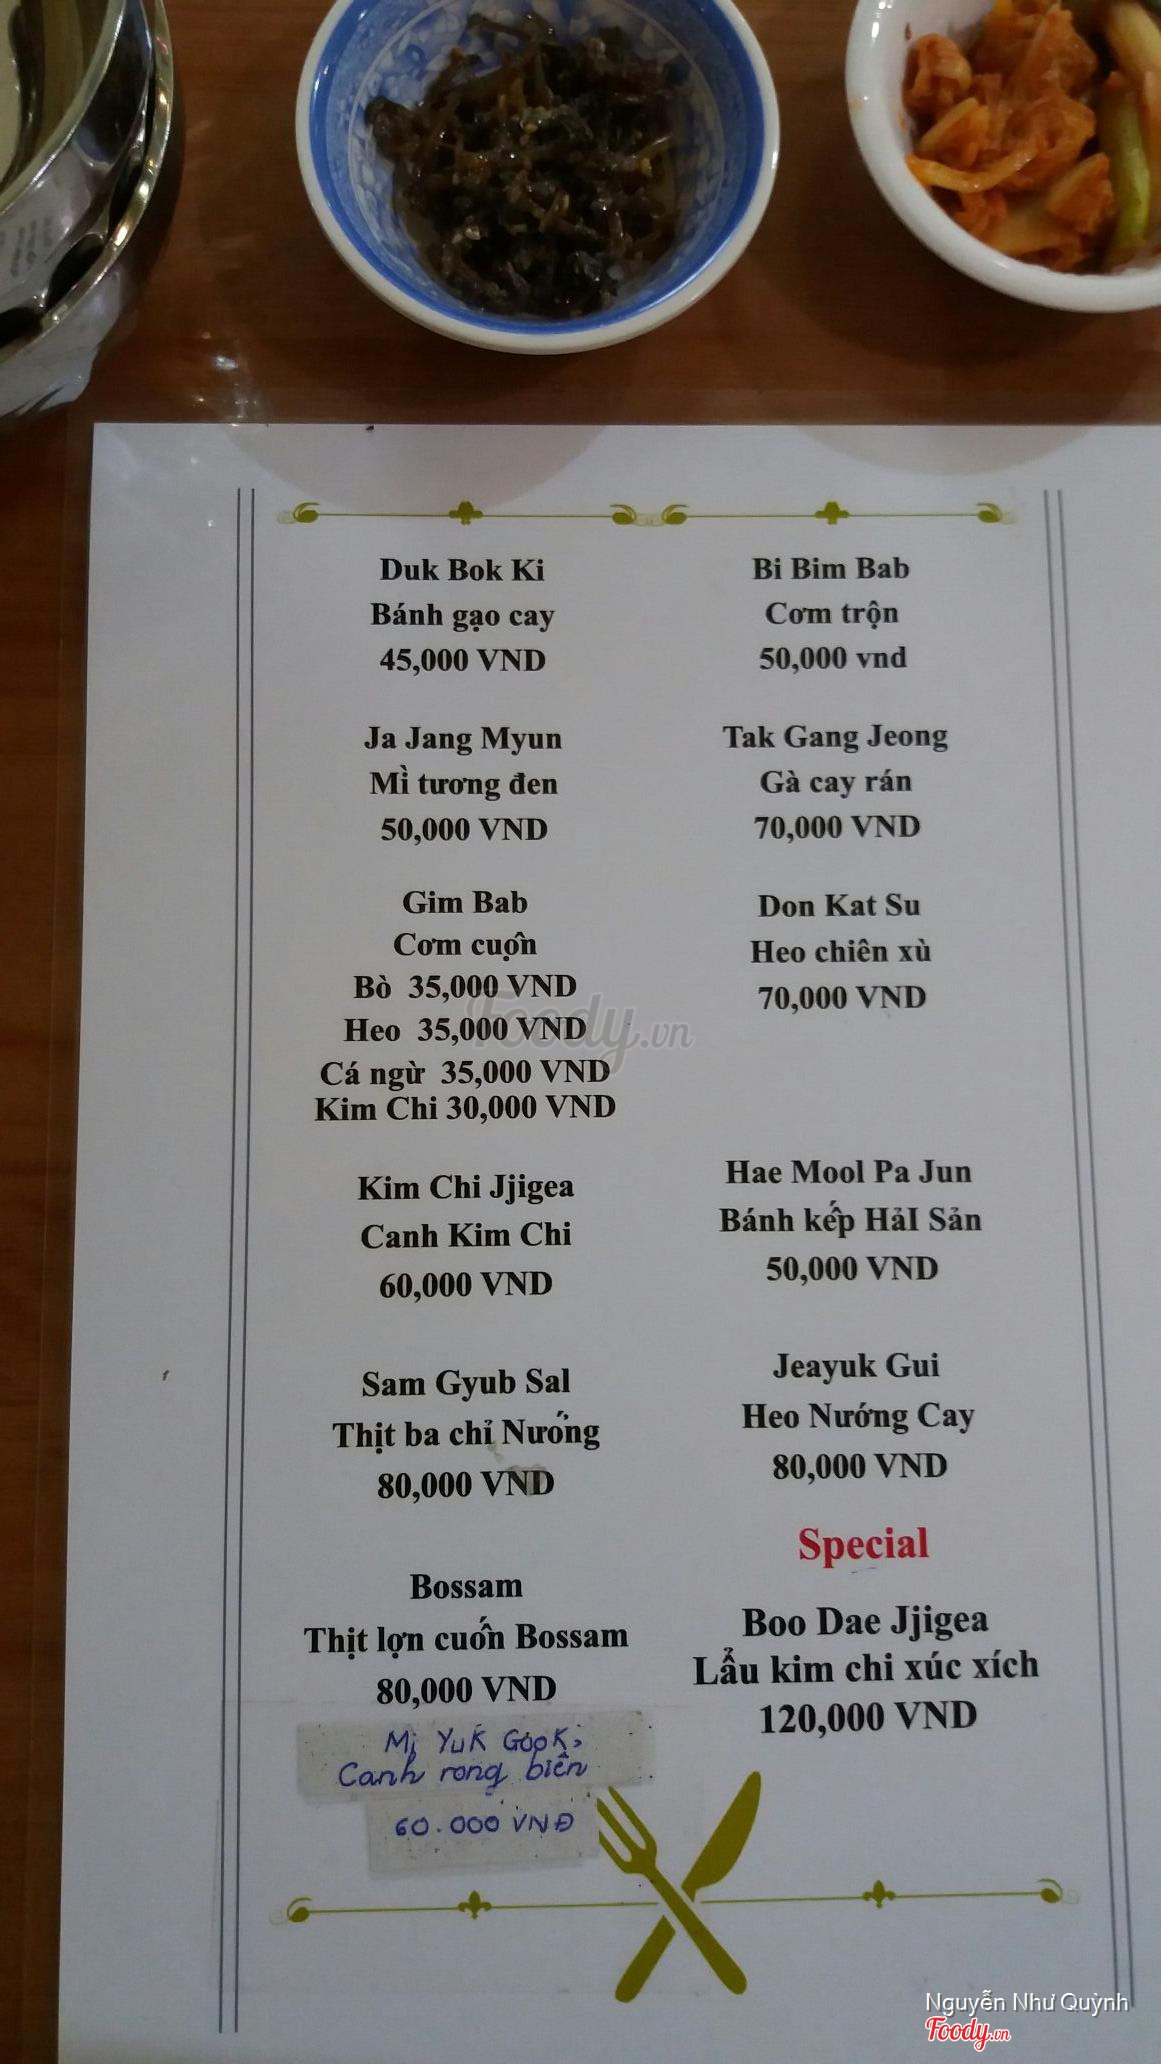 Duk Bok Ki
Bánh gạo cay
45,000 VND
Ja Jang Myun
Mì tương đen
50,000 VND
Gim Bab
Cơm cuộn
Bò 35,000 VND
Heo 35,000 VND
Cá ngừ 35,000 VND
Kim Chi 30,000 VND
Kim Chi Jjigea
Canh Kim Chi
60,000 VND
Sam Gyub Sal
Thịt ba chỉ Nướng
80,000 VND
Bossam
Thịt lợn cuốn Bossam
80,000 VND
Mi Yuk Gook,
Canh rong biển
60.000 VNĐ
Bi Bim Bab
Cơm trộn
50,000 vnd
Tak Gang Jeong
Gà cay rán
70,000 VND
Don Kat Su
Heo chiên xù
70,000 VND
Hae Mool Pa Jun
Bánh kếp HảI Sản
50,000 VND
Jeayuk Gui
Heo Nướng Cay
80,000 VND
Special
Boo Dae Jjigea
Lẩu kim chi xúc xích
120,000 VND
Foody.vn
Nguyễn Như Quỳnh
Foody.vn